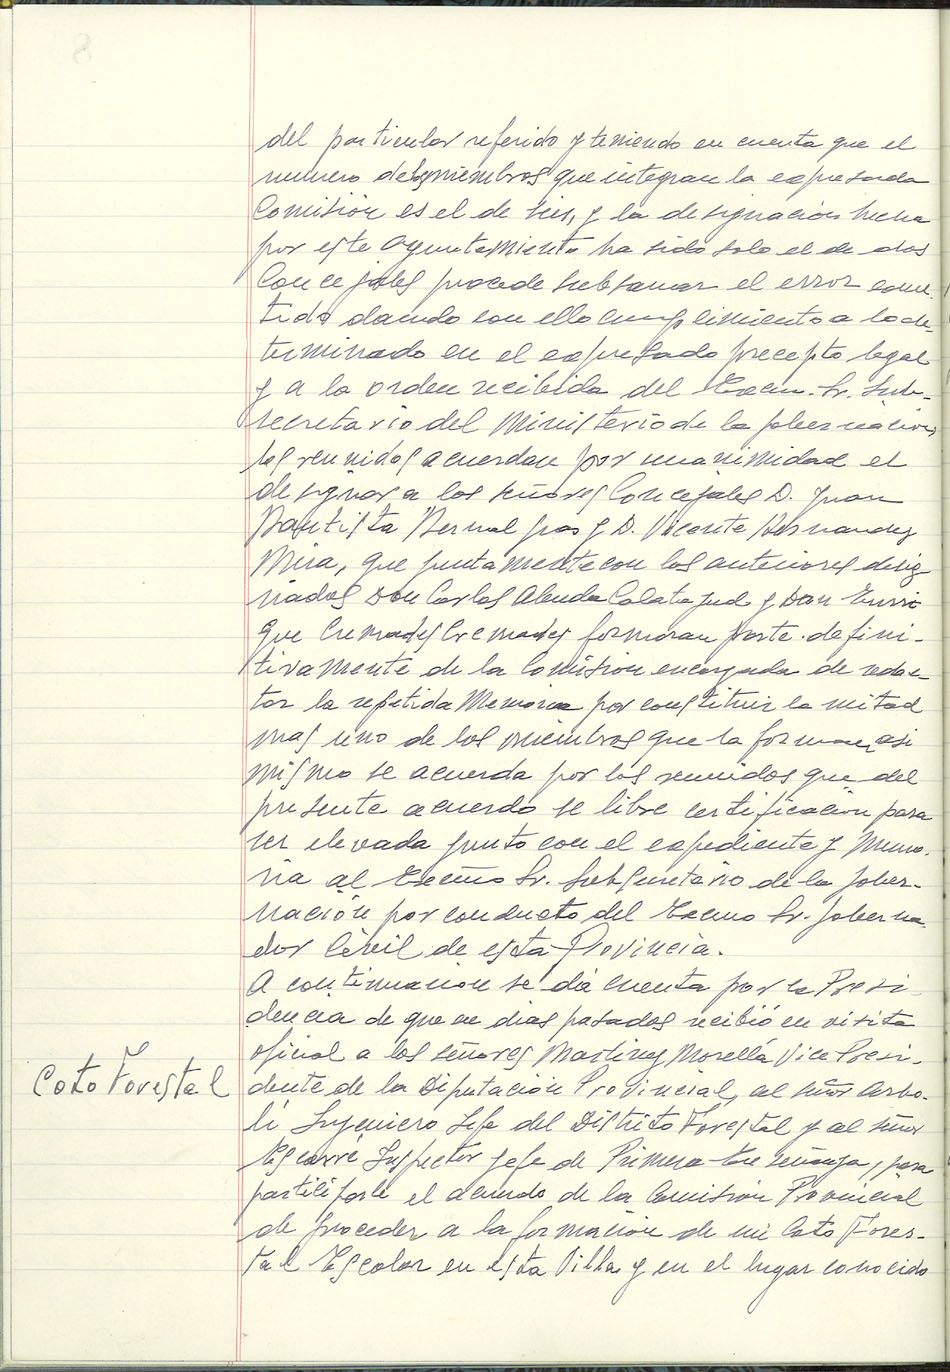 del particular referido y teniendo en cuenta que el
numero de los miembros que integran la expresada
Comisión es el de seis, y la designación hecha
por este Ayuntamiento ha sido solo el de dos
Concejales procede subsanar el error come-
tido dando con ello cumplimiento a lo de-
terminado en el expresado precepto legal
y a la orden recibida del Excm. Sr. Sub-
secretario del Ministerio de la Gobernación,
los reunidos acuerdan por unanimidad el
designar a los señores Concejales D. Juan
Bautista Bernal y D. Vicente Hernandez
Mira, que juntamente con los anteriores desig-
nados Don Carlos Calatayud y Don Enri-
que Cremades Cremades formaran parte definí-
tivamente de la Comisión encargada de redac-
tar la repetida Memoria por constituir la mitad
mas uno de los miembros que la forman, asi
mismo se acuerda por los reunidos que del
presente acuerdo se libre certificación para
ser elevada junto con el expediente y Memo-
ria al Excmo Sr. Subsecretario de la Gober-
nación por conducto del Excmo Sr. Goberna-
dor Civil de esta Provincia.
A continuación se dá cuenta por la Presi-
dencia de que en dias pasados recibió en visita
oficial a los señores Martinez Morellá Vice Presi-
Coto Forestal
dente de la Diputación Provincial, al señor Arbo-
lí Ingeniero Jefe del Distrito Forestal y al señor
Escarré Inspector Jefe de Primera Enseñanza, para
participarle el acuerdo de la Comisión Provincial
de proceder a la formación de un Coto Fores-
tal Escolar en esta Villa y en el lugar conocido